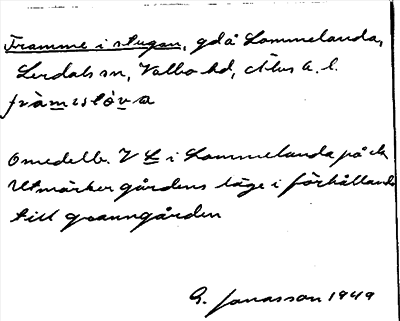 Framme i stugan, gd å Lommelanda,
Lerdals sn, Valbo hd, Älvs b. l.
fràmɛstóva
Omedelb. V L i Lommelanda på ek.
Utmärker gårdens läge i förhållande
till granngården
G. Jonasson 1949